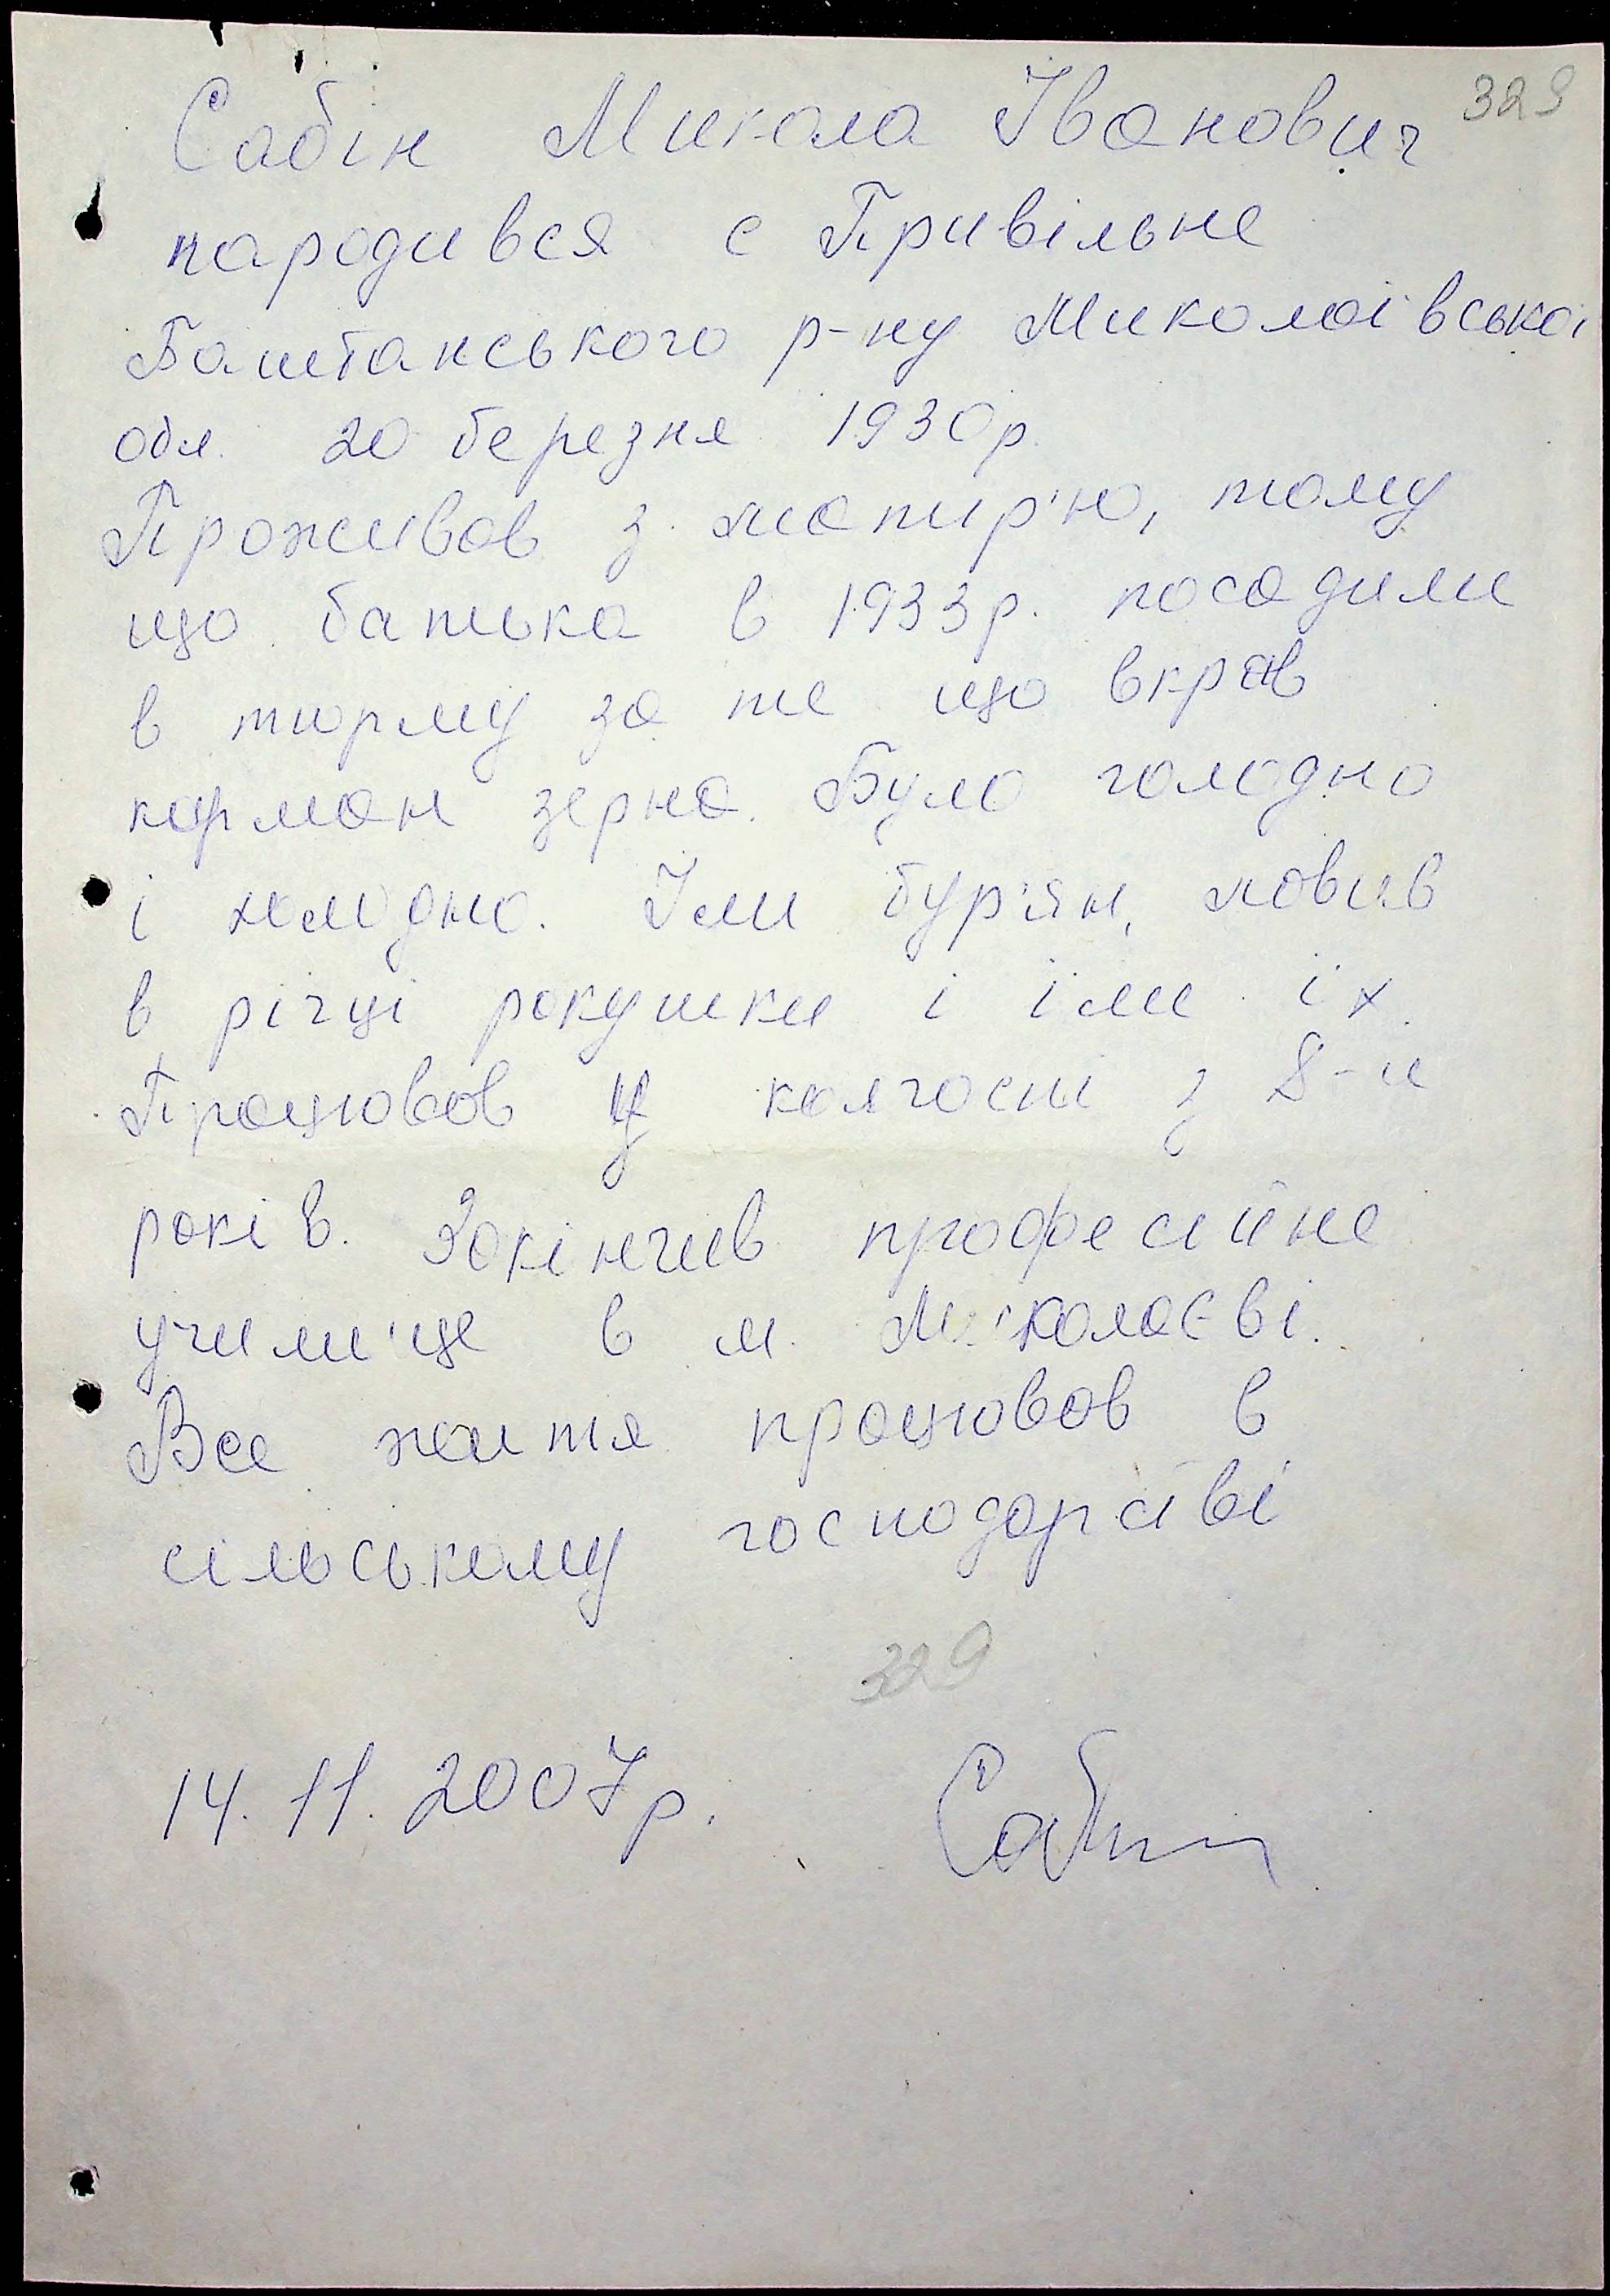 329
Сабін Микола Іванович
народився с Привільне
Баштанського р-ну Миколаївської
обл. 20 березня 1930р.
Проживав з матір'ю, тому
що батька в 1933р. посадили
в тюрму за те що вкрав
карман зерна. Було голодно
і холодно. Їли бур'ян, ловив
в річці ракушки і їли їх.
Працював у колгоспі з 8-и
років. Закінчив професійне
училище в м. Миколаєві.
Все життя працював в
сільському господарстві
329
14.11.2007р. Сабин